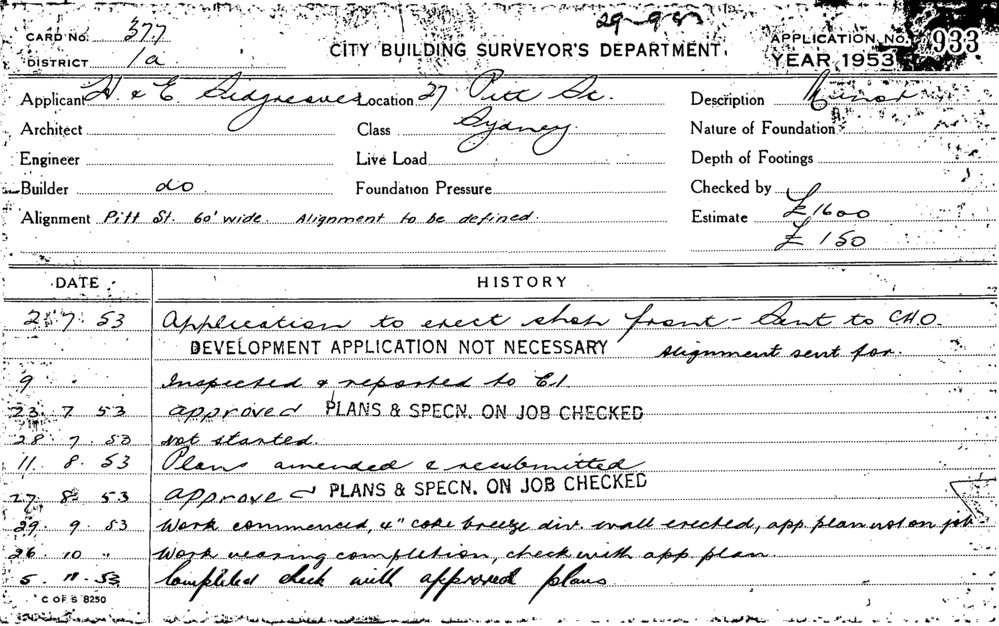 29-9-53
CARD No. 377
CITY BUILDING SURVEYOR'S DEPARTMENT.
APPLICATION No. 933
DISTRICT 1a
YEAR 1953
Applicant H. & E Sidgreaves Location 27 Pitt St. Description Minor
Architect Class Sydney. Nature of Foundation
Engineer Live Load Depth of Footings
Builder do Foundation Pressure Checked by
Alignment Pitt St. 60' wide. Alignment to be defined. Estimate £1600
£150
DATE HISTORY
2. 7. 53 Application to erect shop front - Sent to C.H.O.
DEVELOPMENT APPLICATION NOT NECESSARY Alignment sent for.
9 Inspected & reported to E.I
23. 7 53 approved PLANS & SPECN. ON JOB CHECKED
28. 7. 53 Not started.
11. 8. 53 Plans amended & resubmitted
27. 8. 53 approved PLANS & SPECN. ON JOB CHECKED
29. 9. 53 Work commenced, 4" coke breeze div. wall erected, app. plan not on job
26. 10 " Work nearing completion, check with app. plan.
5. 11. 53 Completed check with approved plans
C OF S 8250